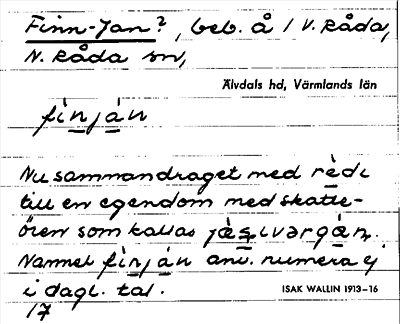 Finn-Jan?, beb. å 1 V. Råda,
N. Råda sn,
Älvdals hd, Värmlands län
fìnján
Nu sammandraget med rèdi
till en egendom med skatte-
ören som kallas jäsivərgán.
Namnet fìnján anv. numera ej
i dagl. tal.
ISAK WALLIN 1913–16
17